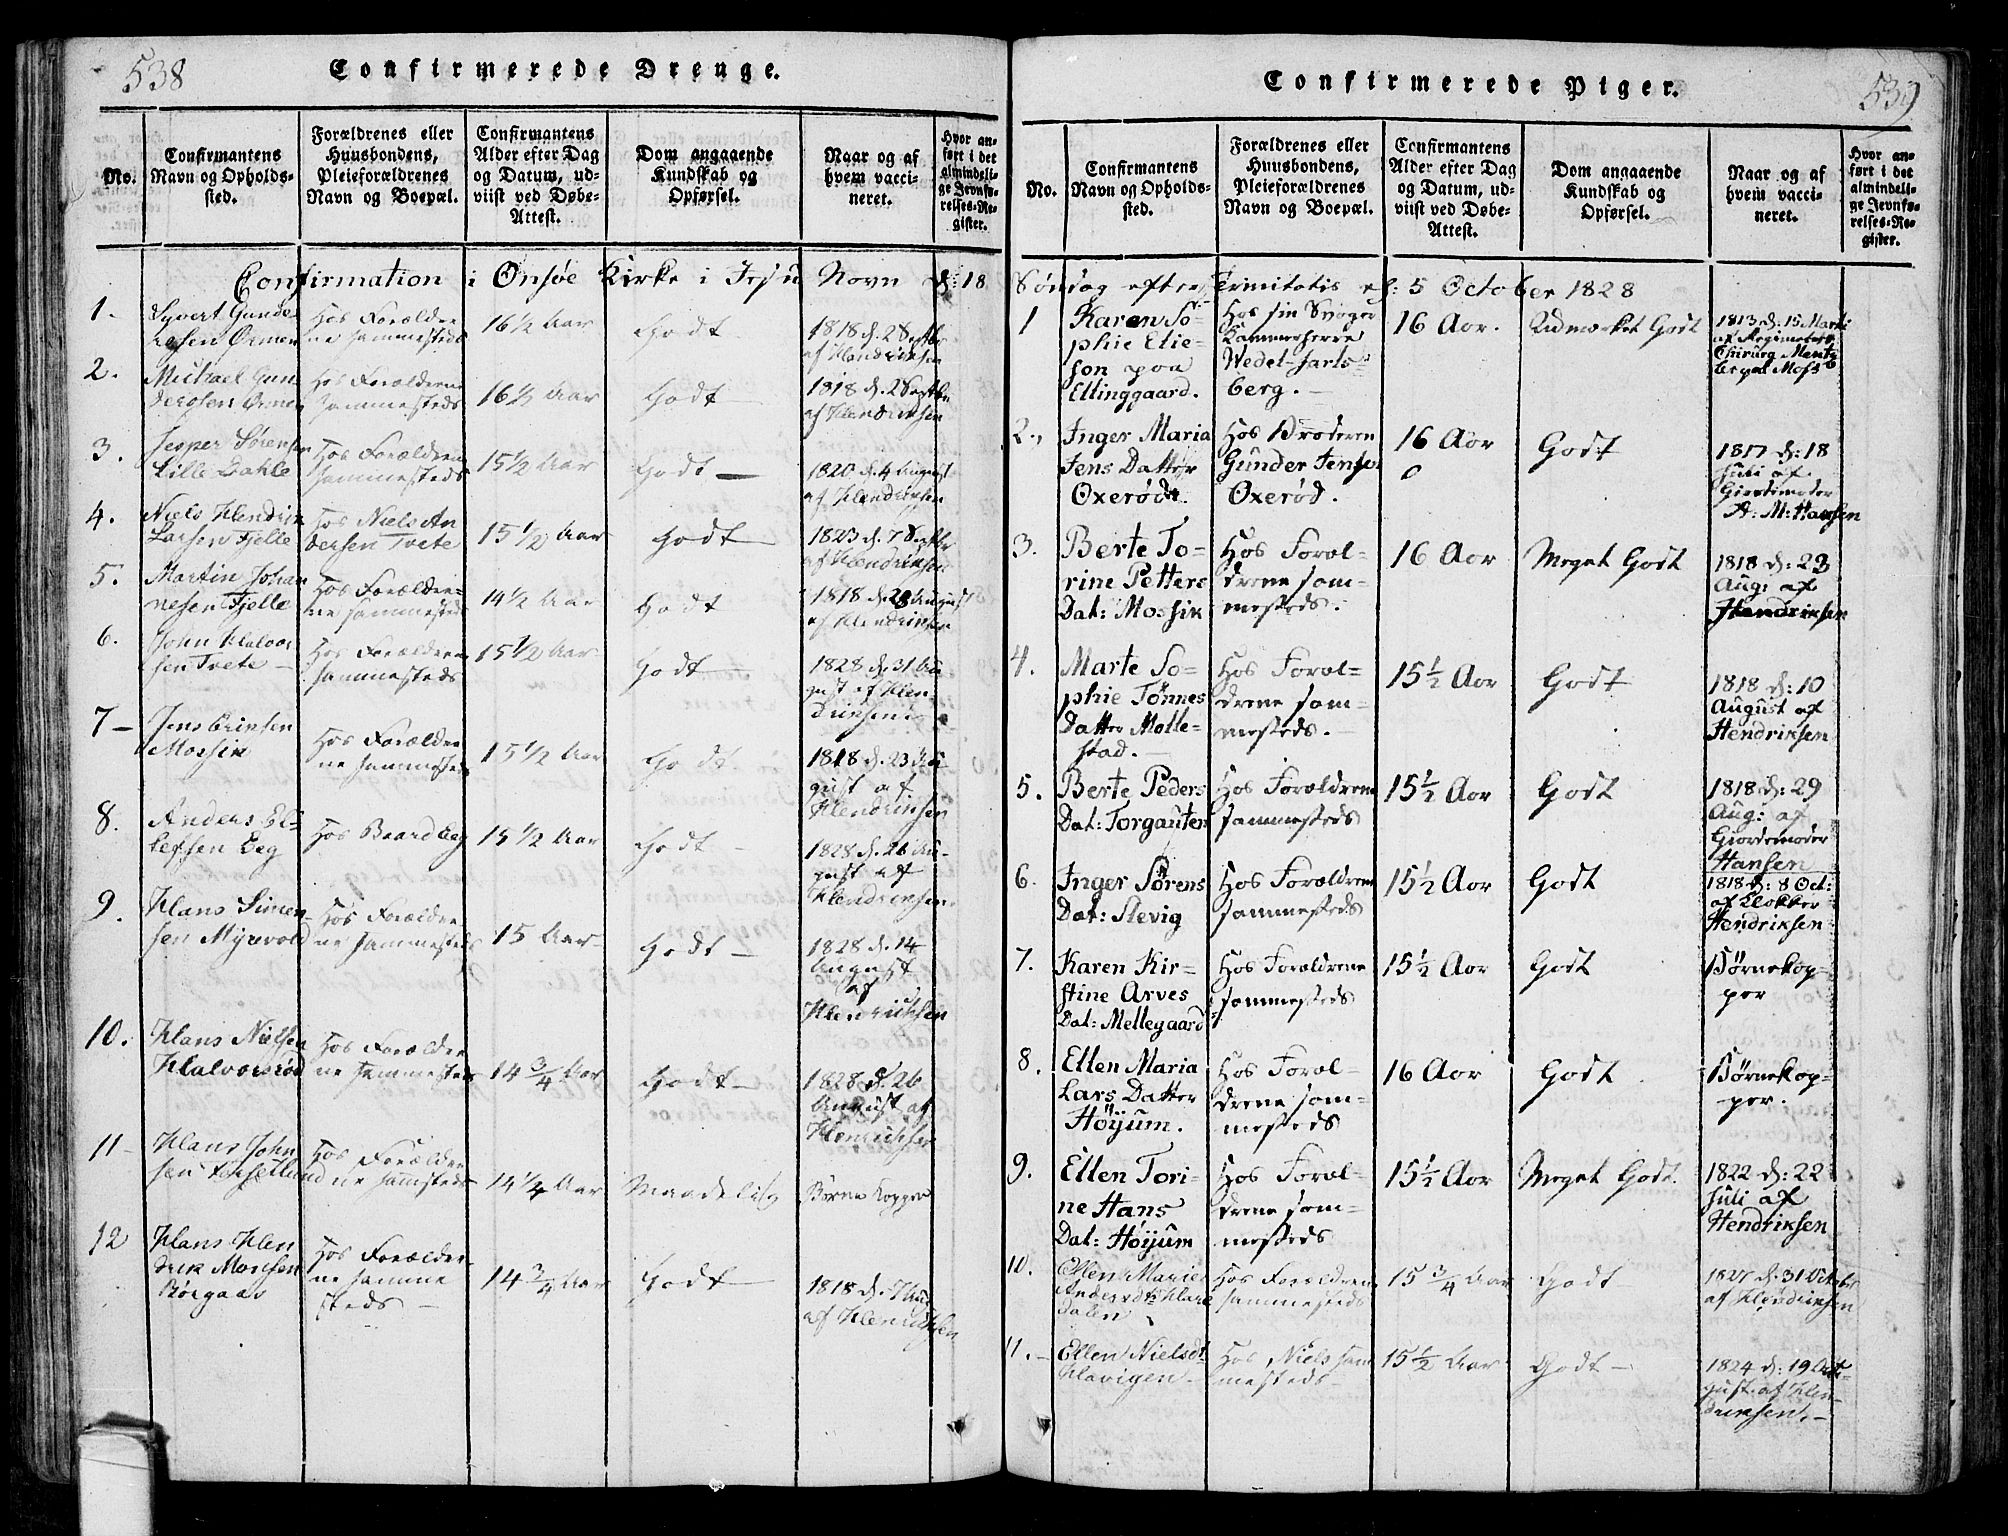 538
Confirmerede Drenge.
No.
Confirmantens
Navn og Opholds-
sted.
Forældrenes eller
Huusbondens,
Pleieforældrenes
Navn og Boepæl.
Confirmantens
Alder efter Dag
og Datum, ud-
viist ved Døbe-
Attest.
Dom angaaende
Kundskab og
Opførsel.
Naar og af
hvem vacci-
neret.
Hvor an-
ført i det
almindeli-
ge Jevnfø-
relses-Re-
gister.
Confirmation i Onsöe Kirke i Jesu Navn d: 18
1.
Syvert Gunde
rosen Ørmen
Hos Forældre
ne sammesteds
16½ Aar
Godt
1818 d. 2 Septbr
af Hendriksen
2.
Michael Gun
derosen Ørmen
Hos Forældrene
sammesteds
16½ Aar
Godt
1818 d. 2 Septbr
af Hendriksen
3.
Jesper Sörensen
Lille Dahle
Hos Forældrene
sammesteds
15½ Aar
Godt
1820 d. 4 August
af Hendriksen
4.
Niels Hendrik
Larsen Fjelle
Hos Niels An
dersen Tvete
15½ Aar
Godt
1823 d. 7 Septbr
af Hendriksen
5.
Martin Johan
nesen Fjelle
Hos Forældre-
ne sammesteds
14½ Aar
Godt
1818 d. 28 August
af Hendriksen
6.
John Halvor
sen Tvete
Hos Forældrene
sammesteds
15½ Aar
Godt
1828 d. 31 Au
gust af Hen
driksen
7
Jens Eriksen
Mossik
Hos Forældre
ne sammesteds
15½ Aar
Godt
1818 d. 23 Au
gust af
Hendriksen
8.
Anders El-
lefsen Eeg
Hos Baard Eeg
15½ Aar
Godt
1828 d. 26 Au-
gust af
Hendriksen
9.
Hans Simen-
sen Myrvold
Hos Forældre
ne sammesteds
15 Aar
Godt
1828 d. 14
August
af
Hendriksen
10.
Hans Nielsen
Halvorsröd
Hos Forældre
ne sammesteds
14¾ Aar
Godt
1828 d. 26
August af
Hendriksen
11
Hans John
sen
Hos Forældre
ne samsteds
14¼ Aar
Maadelig
Börne Kopper
12
Hans Hen
drik Monsen
Börgaas
Hos Forældre
ne samme
steds
14¾ Aar
Godt
1818 d. 7 Aug
af Hendriksen
539
Confirmerede Piger.
No.
Confirmantens
Navn og Opholds-
sted.
Forældrenes eller
Huusbondens,
Pleieforældrenes
Navn og Boepæl.
Confirmantens
Alder efter Dag
og Datum, ud-
viist ved Døbe-
Attest.
Dom angaaende
Kundskab og
Opførsel.
Naar og af
hvem vacci-
neret.
Hvor an-
ført i det
almindeli-
ge Jevnfø-
relses-Re-
gister.
Söndag efter Trinitatis d: 5 October 1828
1
Karen So-
phie Elie-
son paa
Ellinggaard.
Hos sin Svoger
Kammerherre
Wedel-Jarls-
berg.
16 Aar.
Udmerket Godt
1813 d. 15 Marti
af Regiments
Chirurg Mentz
Moss
2.
Inger Maria
Jens Datter
Oxeröd.
Hos Broderen
Gunder Jensen
Oxeröd.
16 Aar
Godt
1817 d: 18
Juli af
Giordemoder
A: M: Hansen
3.
Berte To-
rine Petters
Dat: Mossik
Hos Foræl-
drene sam-
mesteds.
16 Aar
Meget Godt
1818 d: 23
Aug: af
Hendriksen
4.
Marte So-
phie Tönnes
Datter Molle-
stad.
Hos Foræl-
drene sam-
mesteds.
15½ Aar
Godt
1818 d: 10
August af
Hendriksen
5.
Berte Peders
Dat: Torgauten
Hos Forældrene
sammesteds
15½ Aar
Godt
1818 d: 29
Aug: af
Giordemoder
Hansen
6.
Inger Sörens
Dat: Slevig
Hos Forældrene
sammesteds
15½ Aar
Godt
1818 d: 8 Oct:
af Klokker
Hendriksen
7.
Karen Kir-
stine Arves
Dat: Mellegaard
Hos Forældrene
sammesteds
15½ Aar
Godt
Börnekop-
per
8.
Ellen Maria
Lars Datter
Höyum.
Hos Foræl-
drene sam-
mesteds
16 Aar
Godt
Börnekop-
per.
9.
Ellen Tori-
ne Hans
Dat: Höyum
Hos Foræl-
drene sam-
mesteds
15½ Aar
Meget Godt.
1822 d: 22
Juli af
Hendriksen
10.
Ellen Marie
Andersdt
dalen
Hos Forældrene
sammesteds
15¾ Aar
Godt
1827 d. 31 Octobr
af Hendriksen
11.
Ellen Nielsdt
Havigen
Hos Niels sam
mesteds
15½ Aar
Godt
1824 d: 19 Au-
gust af Hen-
driksen.